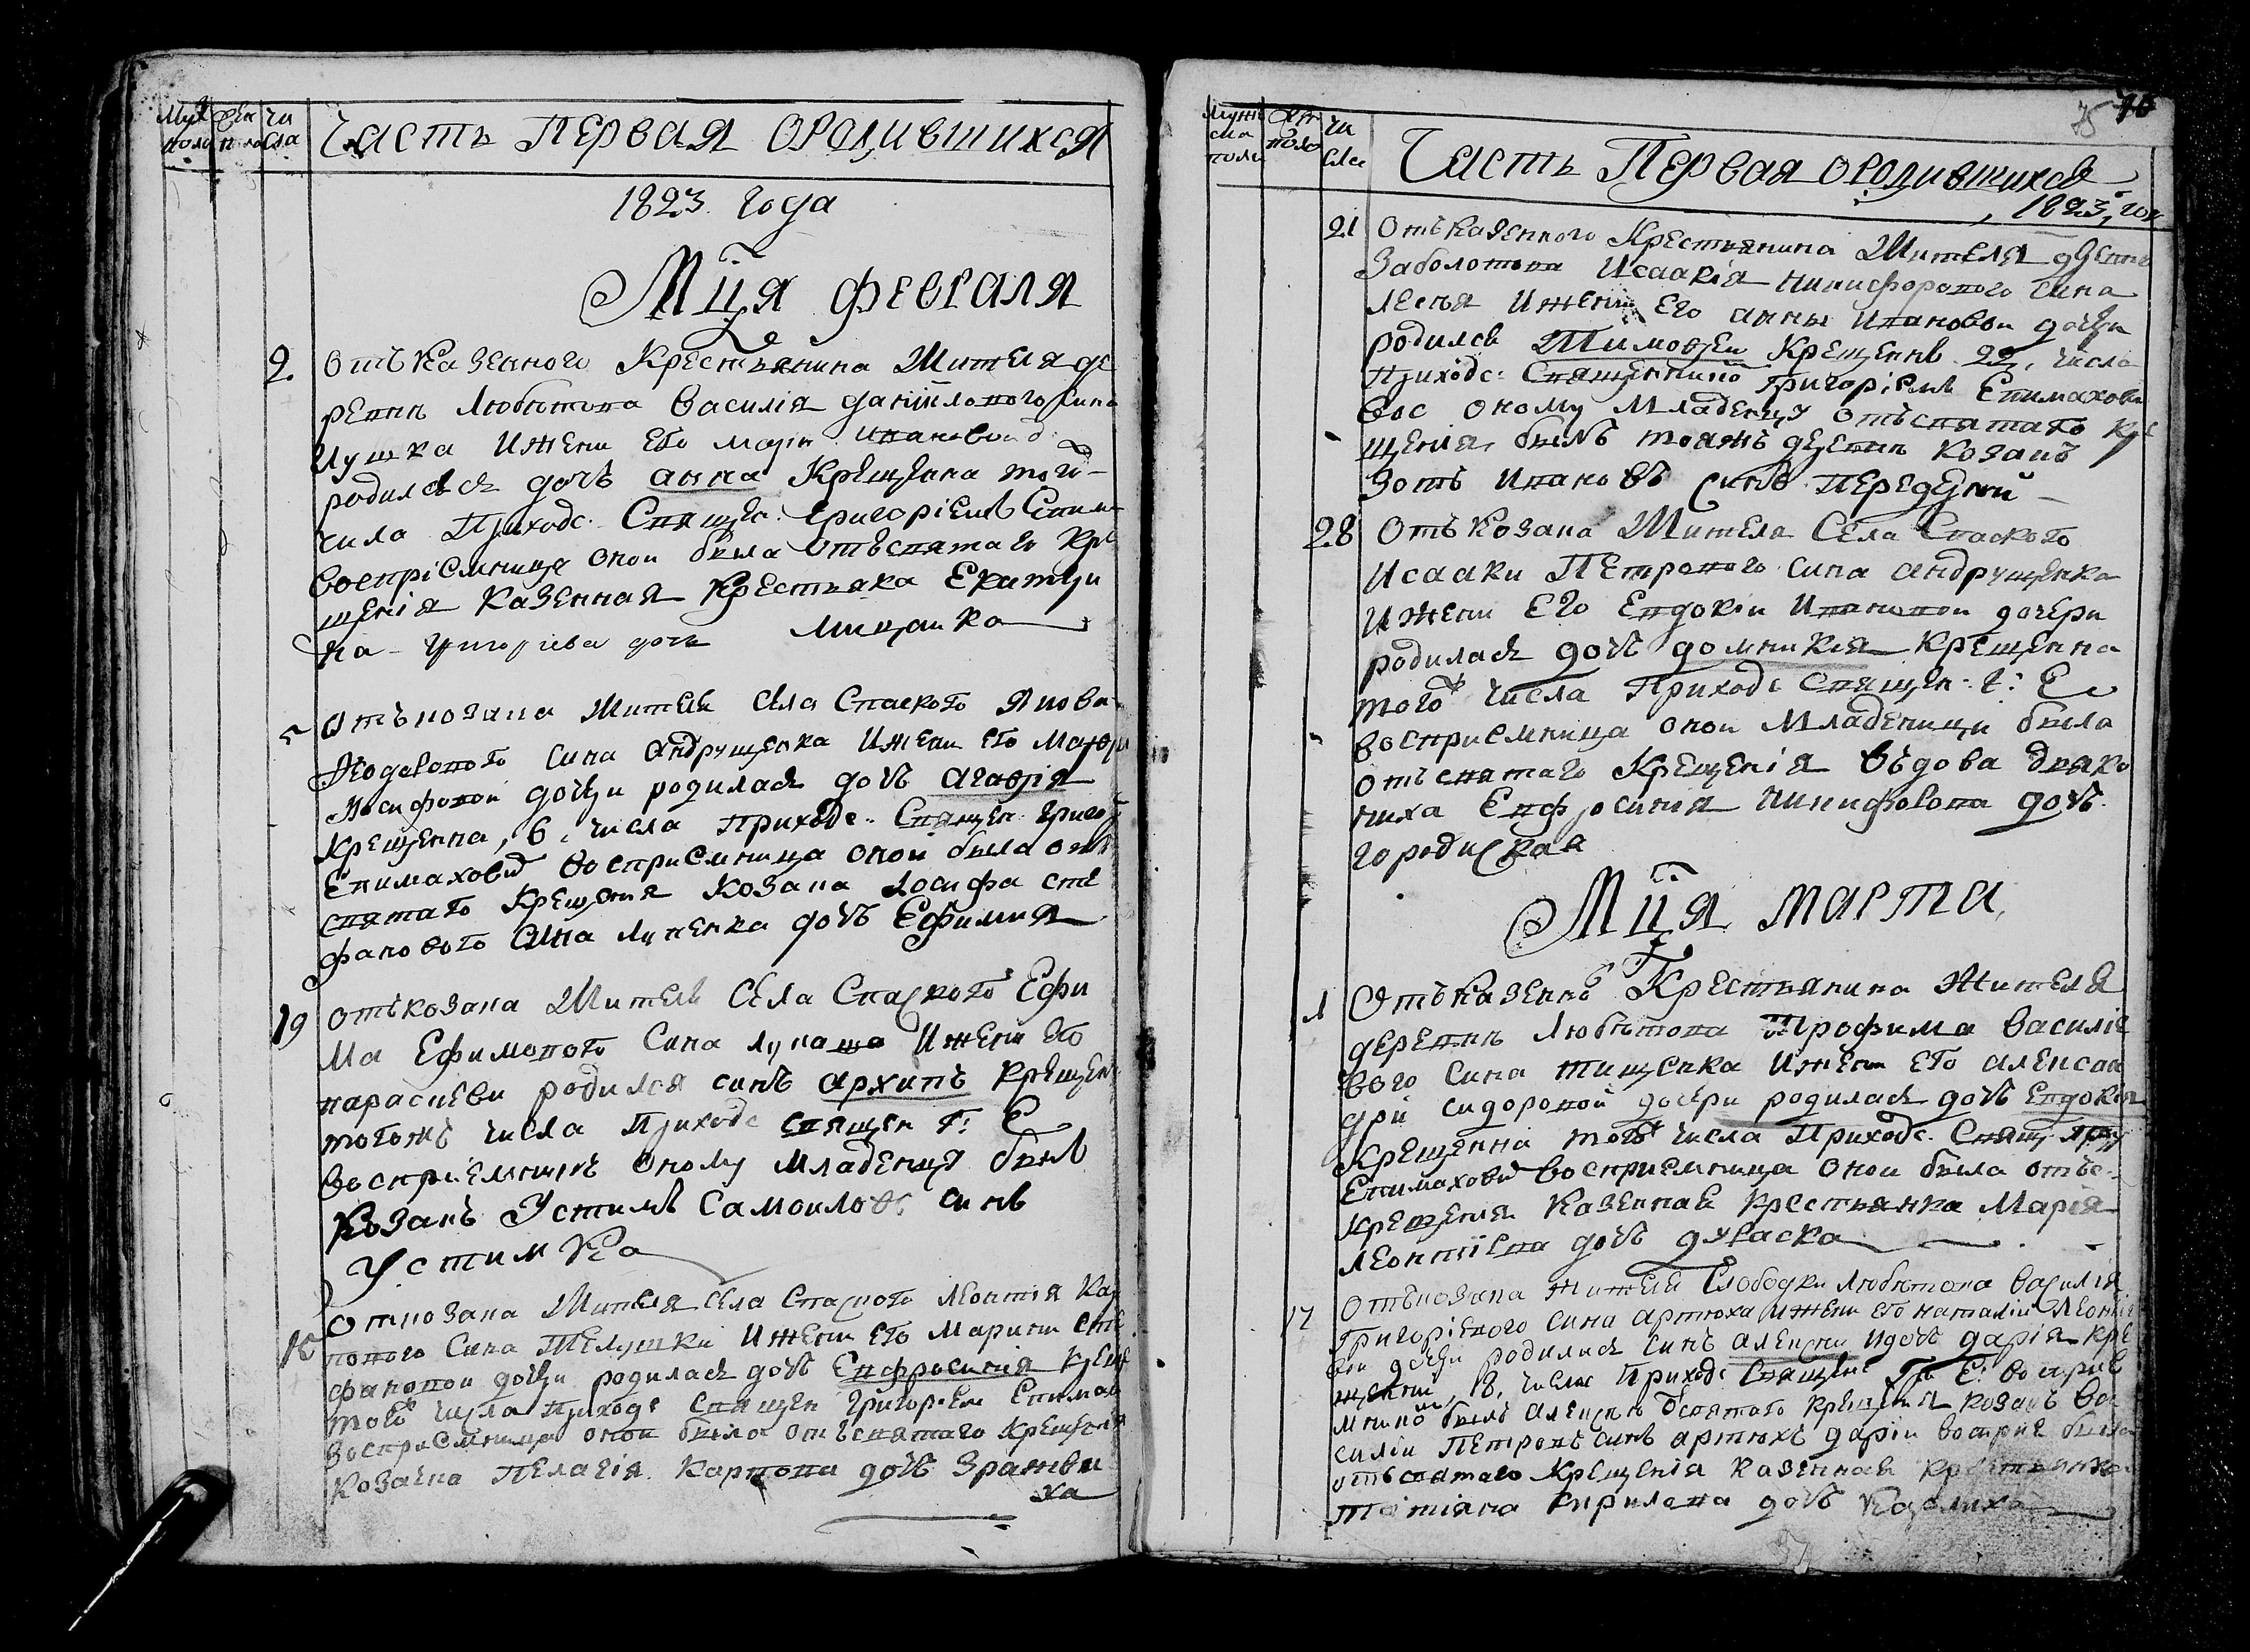 Муж пола
Жен пола
чи сла
Часть Первая ородившихся
1823 года
Мця февраля
2. Отъ казенного Крестьянина Жителя де
ревнѣ Любътова Василія даниилового сина
Иушка Ижени его Марiи Ивановой
родилася дочъ анна Крещенна того
числа Приходс. Священ. Григоріемъ
воспріемница оной была отъ святаго кре
щенія казенная крестьянка Екатери
на Григориева дочь
отъ козака Жителя села Спаского Якова
Феодорового сина андрущенка Ижени его
Иосифовой дочери родилася дочъ агафія
Крещенна, 6, числа приходс. Священ григо
Епимаховичемъ восприемница оной была отъ
святаго крещения козака Иосифа сте
фанового сина Луценка дочъ Ефимия
19 отъ козака Жителя села Спаского Ефи
ма Ефимового сина лукаша Ижени его
параскеви родился синъ архипъ крещен
тогожъ числа Приходс священ Г: Е
воспріемникъ оному младенцу былъ
козакъ Устимъ Самоиловъ синъ
Устимка
от козака Жителя села Спаского леонтія Кар
пового сина Телушки Ижени его Марини сте
фановой дочери родилася дочъ Евфросинія крещ
того числа приходс священ григорием Епимах
восприемница оной была отъ святаго крещения
козачка Пелагія Карпова дочъ Зражев
ха
75 76
Мужес ка пола
Жен пола
чи сла
Часть Первая ородившихся
1823, год
21 Отъ казенного Крестьянина Жителя дрвне
Заболотова Исаакія никифорового сина
Ижени его анны Ивановой дочери
родился Тимофей Крещеннъ 22, числа
приходс: Священникомъ григоріемъ Епимахови
вос оному младенцу отъ святаго кре
щения былъ тояжъ дрвенѣ козакъ
Зотъ Ивановъ синъ Передерий
28 Отъ козака Жителя села Спаского
Исааки Петрового сина андрущенка
Ижени его Евдокіи Ивановой дочери
родилася дочъ домникія крещенна
того числа приходс священ: г: Е
восприемница оной младеници была
отъ святаго крещенія въдова дяко
ниха Евфросиния никифорова дочъ
городиская
Мця марта,
1 Отъ казенно Крестьянина Жителя
деревнѣ Любътова Трофима Василіе
вого сина тищенка Ижени его алексан
дри сидоровой дочери родилася дочъ Евдокія
крещенна того числа приходс. Свящ
Епимахови восприемница оной была отъ с.
крещения казенная крестьянка Марія
леонтіева дочъ дураска
17 отъ козака жителя слободки любътова Василія
Григоріевого сина артюха Ижени его наталіи леонтіе
вой дочери родились синъ алексий идочъ дарія кре
щенни, 18, числа приходс Священ Гр: Е: восприе
мникомъ былъ алексию отсвятаго крещения козакъ Ва
силій Петровъ синъ артюхъ дарии восприе была
отъ святаго крещенія казенная крестьянка
татіана кирилова дочъ